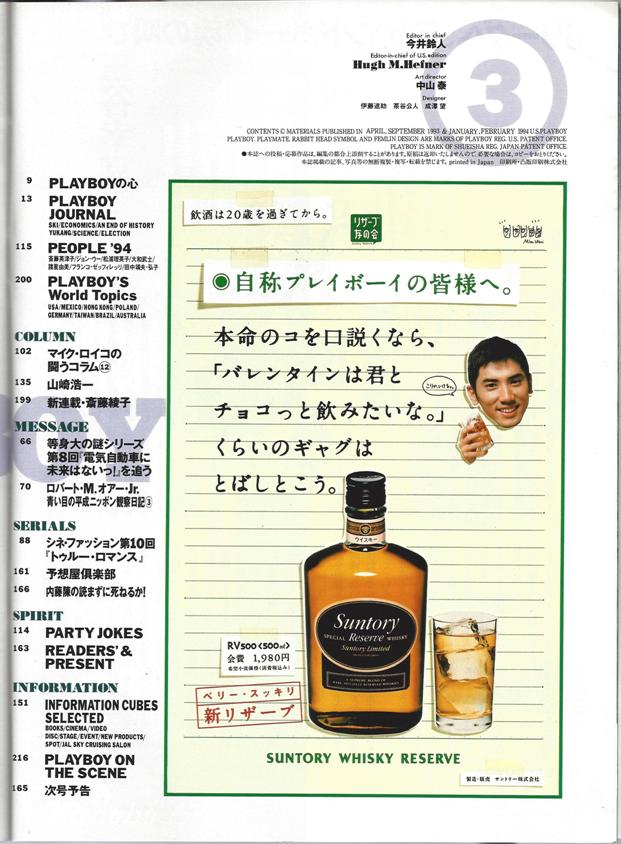 Editor in chief
今井鈴人
Editor-in-chief of U.S. edition
Hugh M.Hefner
Art director
中山 泰
Designer
伊藤遊助 茶谷公人 成澤 望
3
CONTENTS © MATERIALS PUBLISHED IN APRIL, SEPTEMBER 1993 & JANUARY, FEBRUARY 1994 U.S.PLAYBOY
PLAYBOY, PLAYMATE, RABBIT HEAD SYMBOL AND FEMLIN DESIGN ARE MARKS OF PLAYBOY REG. U.S. PATENT OFFICE.
PLAYBOY IS MARK OF SHUEISHA REG. JAPAN PATENT OFFICE.
●本誌への投稿・応募作品は、編集の都合上添削することがあります。原稿は返却いたしませんので、必要な場合は、コピーをおとりください。
本誌掲載の記事、写真等の無断複製・複写・転載を禁じます。printed in Japan 印刷所・凸版印刷株式会社
9 PLAYBOYの心
13 PLAYBOY
JOURNAL
SKI/ECONOMICS/AN END OF HISTORY
YUKANG/SCIENCE/ELECTION
115 PEOPLE '94
斎藤英津子/ジョン・ウー/松浦理英子/大和武士/
諸星由美/フランコ・ゼッフィレッリ/田中靖夫・弘子
200 PLAYBOY'S
World Topics
USA/MEXICO/HONG KONG/POLAND/
GERMANY/TAIWAN/BRAZIL/AUSTRALIA
COLUMN
102 マイク・ロイコの
闘うコラム⑫
135 山崎浩一
199 新連載・斎藤綾子
MESSAGE
66 等身大の謎シリーズ
第8回「電気自動車に
未来はないっ!」を追う
70 ロバート・M.オアー・Jr.
青い目の平成ニッポン観察日記③
SERIALS
88 シネ・ファッション第10回
『トゥルー・ロマンス』
161 予想屋倶楽部
166 内藤陳の読まずに死ねるか!
SPIRIT
114 PARTY JOKES
163 READERS' &
PRESENT
INFORMATION
151 INFORMATION CUBES
SELECTED
BOOKS/CINEMA/VIDEO
DISC/STAGE/EVENT/NEW PRODUCTS/
SPOT/JAL SKY CRUISING SALON
216 PLAYBOY ON
THE SCENE
165 次号予告
飲酒は20歳を過ぎてから。
リザーブ
友の会
◉自称プレイボーイの皆様へ。
本命のコを口説くなら、
「バレンタインは君と
チョコっと飲みたいな。」
くらいのギャグは
とばしとこう。
ウイスキー
Suntory
SPECIAL Reserve WHISKY
Suntory Limited
A SUPREME BLEND OF
RV500<500ml>
会費 1,980円
希望小売価格(消費税込み)
ベリー・スッキリ
新リザーブ
SUNTORY WHISKY RESERVE
製造・販売 サントリー株式会社